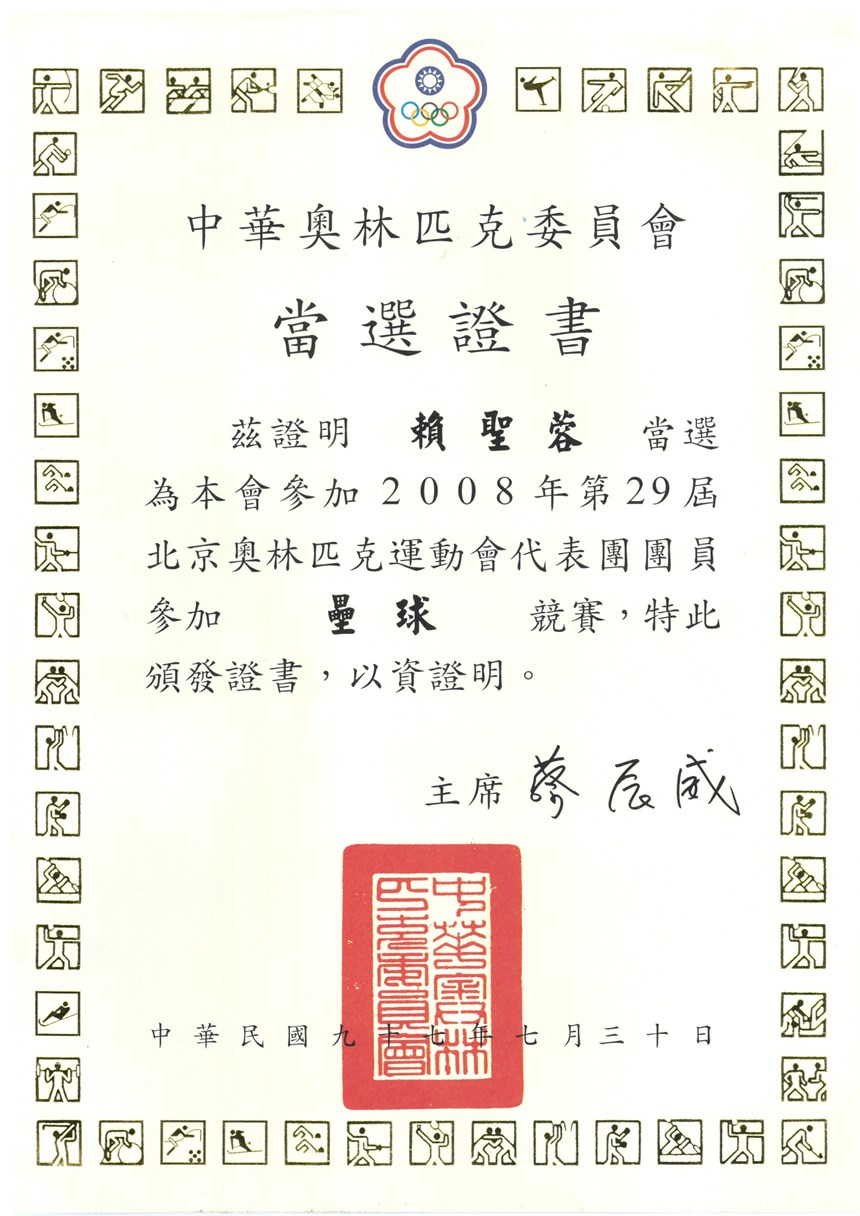 中華奧林匹克委員會
當選證書
茲證明 賴聖蓉 當選
為本會參加2008年第29屆
北京奧林匹克運動會代表團團員
參加 壘球 競賽，特此
頒發證書，以資證明。
主席 蔡辰威
中華奧林
匹克委員會
中華民國九十七年七月三十日